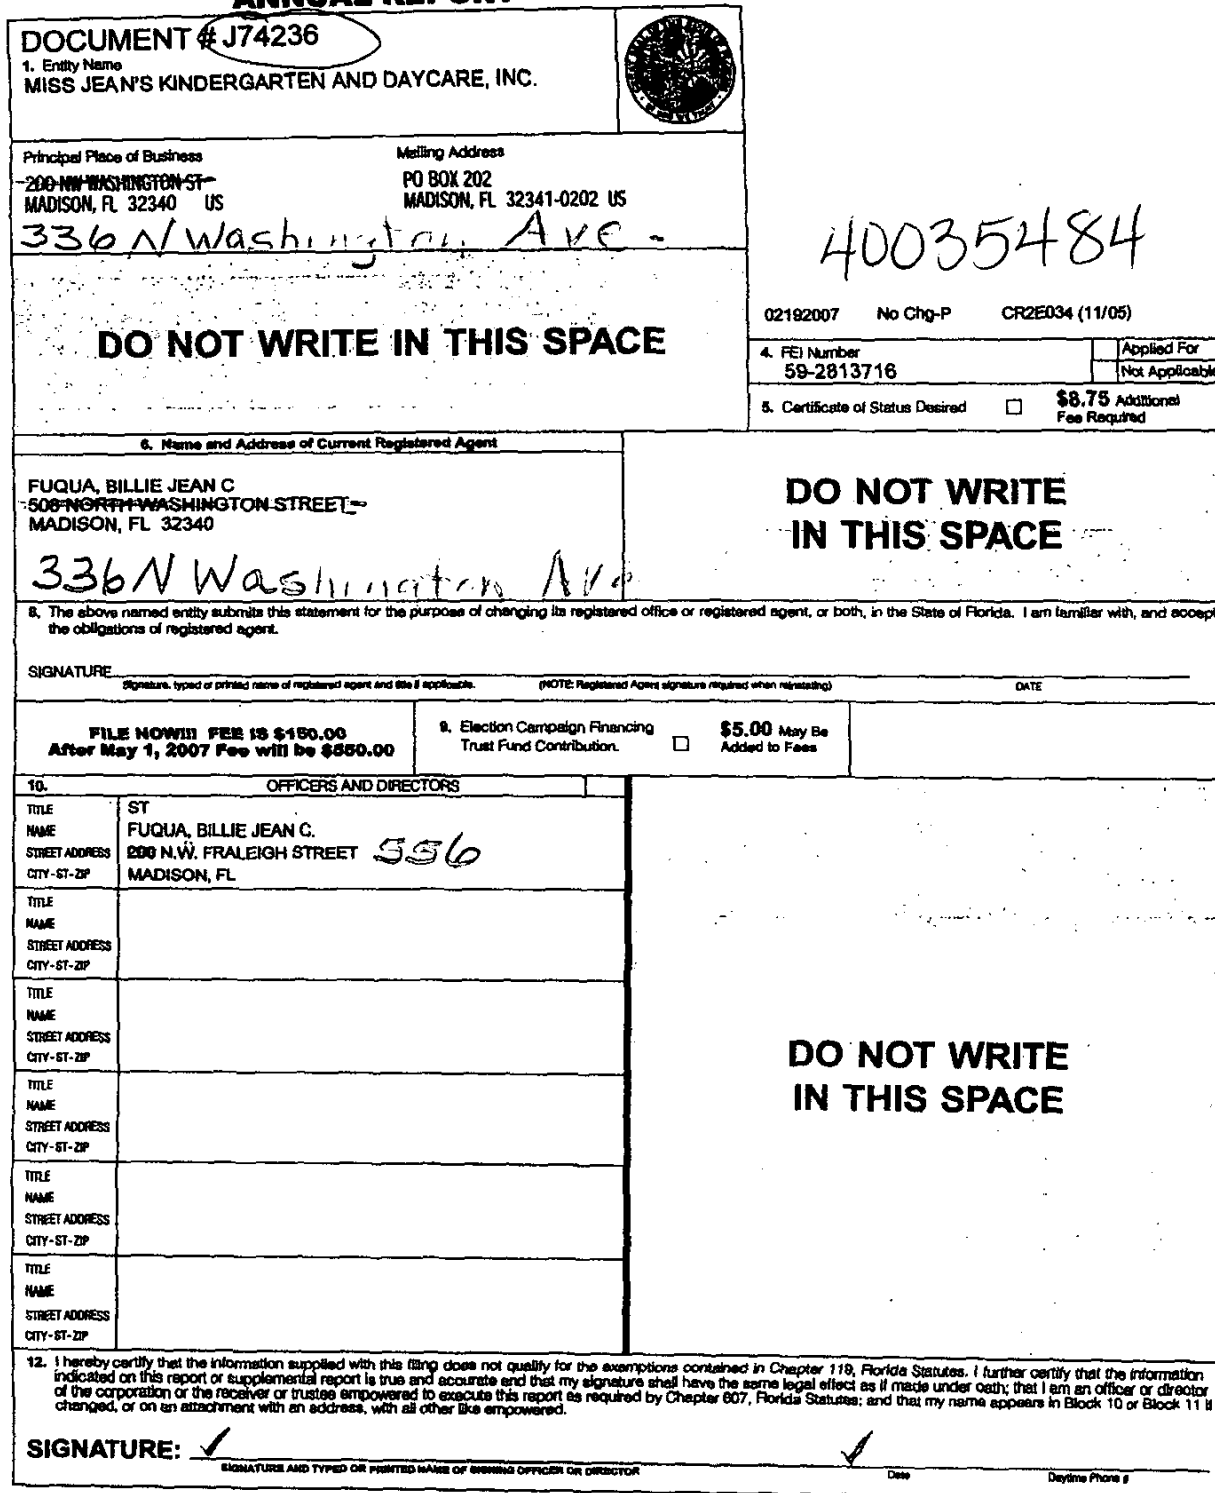 ANNUAL REPORT
DOCUMENT # J74236
1. Entity Name
MISS JEAN'S KINDERGARTEN AND DAYCARE, INC.
Principal Place of Business
Mailing Address
200 NW WASHINGTON ST
PO BOX 202
MADISON, FL 32340 US
MADISON, FL 32341-0202 US
336 N Washington Ave -
40035484
DO NOT WRITE IN THIS SPACE
02192007 No Chg-P CR2E034 (11/05)
4. FEI Number
59-2813716
Applied For
Not Applicable
5. Certificate of Status Desired ☐ $8.75 Additional
Fee Required
6. Name and Address of Current Registered Agent
FUQUA, BILLIE JEAN C
508 NORTH WASHINGTON STREET
MADISON, FL 32340
336 N Washington Ave
DO NOT WRITE
IN THIS SPACE
8. The above named entity submits this statement for the purpose of changing its registered office or registered agent, or both, in the State of Florida. I am familiar with, and accept
the obligations of registered agent.
SIGNATURE
Signature, typed or printed name of registered agent and title if applicable. (NOTE: Registered Agent signature required when reinstating) DATE
FILE NOW!!! FEE IS $150.00
After May 1, 2007 Fee will be $550.00
9. Election Campaign Financing
Trust Fund Contribution. ☐ $5.00 May Be
Added to Fees
10. OFFICERS AND DIRECTORS
TITLE ST
NAME FUQUA, BILLIE JEAN C.
STREET ADDRESS 200 N.W. FRALEIGH STREET 556
CITY-ST-ZIP MADISON, FL
TITLE
NAME
STREET ADDRESS
CITY-ST-ZIP
TITLE
NAME
STREET ADDRESS
CITY-ST-ZIP
TITLE
NAME
STREET ADDRESS
CITY-ST-ZIP
TITLE
NAME
STREET ADDRESS
CITY-ST-ZIP
TITLE
NAME
STREET ADDRESS
CITY-ST-ZIP
DO NOT WRITE
IN THIS SPACE
12. I hereby certify that the information supplied with this filing does not qualify for the exemptions contained in Chapter 119, Florida Statutes. I further certify that the information
indicated on this report or supplemental report is true and accurate and that my signature shall have the same legal effect as if made under oath; that I am an officer or director
of the corporation or the receiver or trustee empowered to execute this report as required by Chapter 607, Florida Statutes; and that my name appears in Block 10 or Block 11 if
changed, or on an attachment with an address, with all other like empowered.
SIGNATURE:
SIGNATURE AND TYPED OR PRINTED NAME OF SIGNING OFFICER OR DIRECTOR Date Daytime Phone #